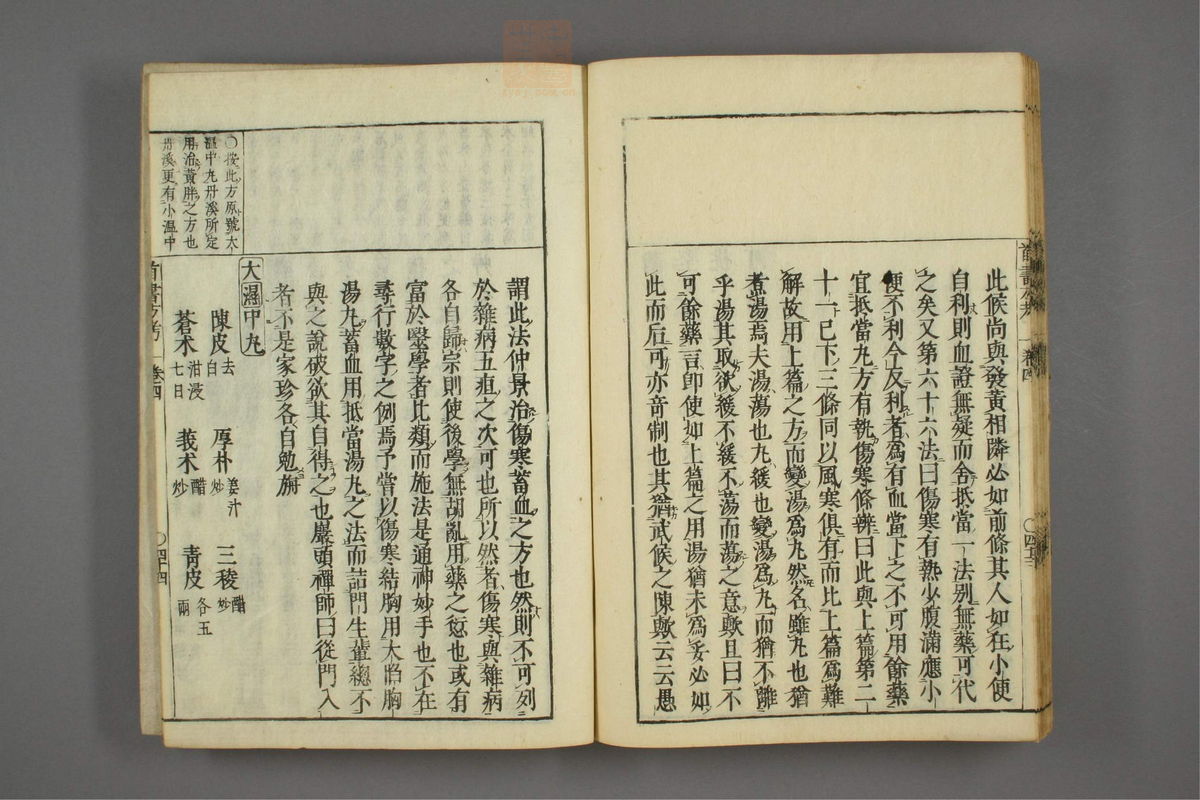 此候尚與發黃相隣必如前條其人如狂小便
自利則血證無疑而舍抵當一法别無藥可代
之矣又第六十六法曰傷寒有熱少腹滿應小
便不利今反利者爲有血當下之不可用餘藥
宜抵當丸方有執傷寒條辨曰此與上篇第二
十一已下三條同以風寒俱有而比上篇爲難
解故用上篇之方而變湯爲丸然名雖丸也猶
煮湯焉夫湯蕩也丸緩也變湯爲丸而猶不離
乎湯其取欲緩不緩不蕩而蕩之意歟且曰不
可餘藥言即使如上篇之用湯猶未爲妥必如
此而后可亦竒制也其猶武候之陳歟云云愚
謂此法仲景治傷寒蓄血之方也然則不可列
於雜病五疸之次可也所以然者傷寒與雜病
各自歸宗則使後學無胡亂用藥之愆也或有
富於毉學者比類而施法是通神妙手也不在
尋行數字之例焉予嘗以傷寒結胸用大陷胸
湯丸蓄血用抵當湯丸之法而詰門生輩總不
與之說破欲其自得之也巖頭禪師曰從門入
者不是家珍各自勉旃
〇按此方原號大
溫中丸丹溪所定
用治黃胖之方也
丹溪更有小溫中
大溫中丸
陳皮去白 厚朴姜汁炒 三稜醋炒
蒼术泔浸七日 莪术醋炒 青皮各五兩
卷四
〇四十四